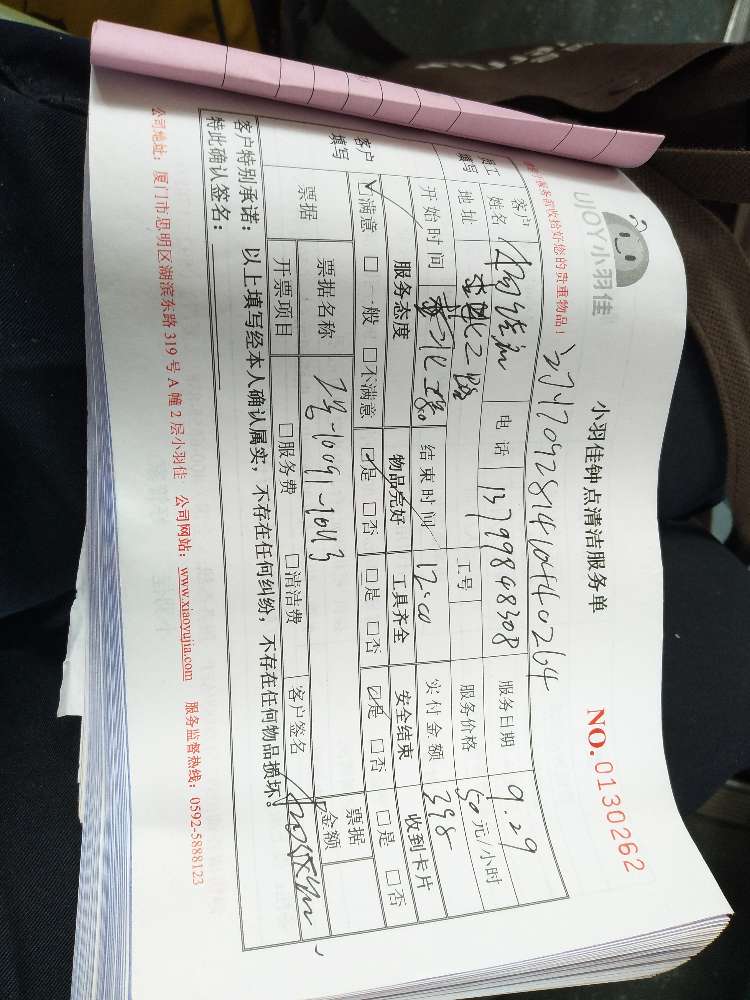 UJOY小羽佳
小羽佳钟点清洁服务单
NO.0130262
服务前收拾好您的贵重物品！
员工填写
客户姓名
电话 13799848308
服务日期 9.29
地址
工号
服务价格 50元/小时
开始时间
结束时间 12:00
实付金额 398
客户填写
服务态度 物品完好 工具齐全 安全结束 收到卡片
☑满意 □一般 □不满意 ☑是 □否 □是 □否 ☑是 □否 □是 □否
票据
票据名称
票据金额
开票项目 □服务费 □清洁费
客户签名
客户特别承诺：以上填写经本人确认属实，不存在任何纠纷，不存在任何物品损坏。
特此确认签名：
公司地址：厦门市思明区湖滨东路319号A幢2层小羽佳 公司网站：www.xiaoyujia.com 服务监督热线：0592-5888123